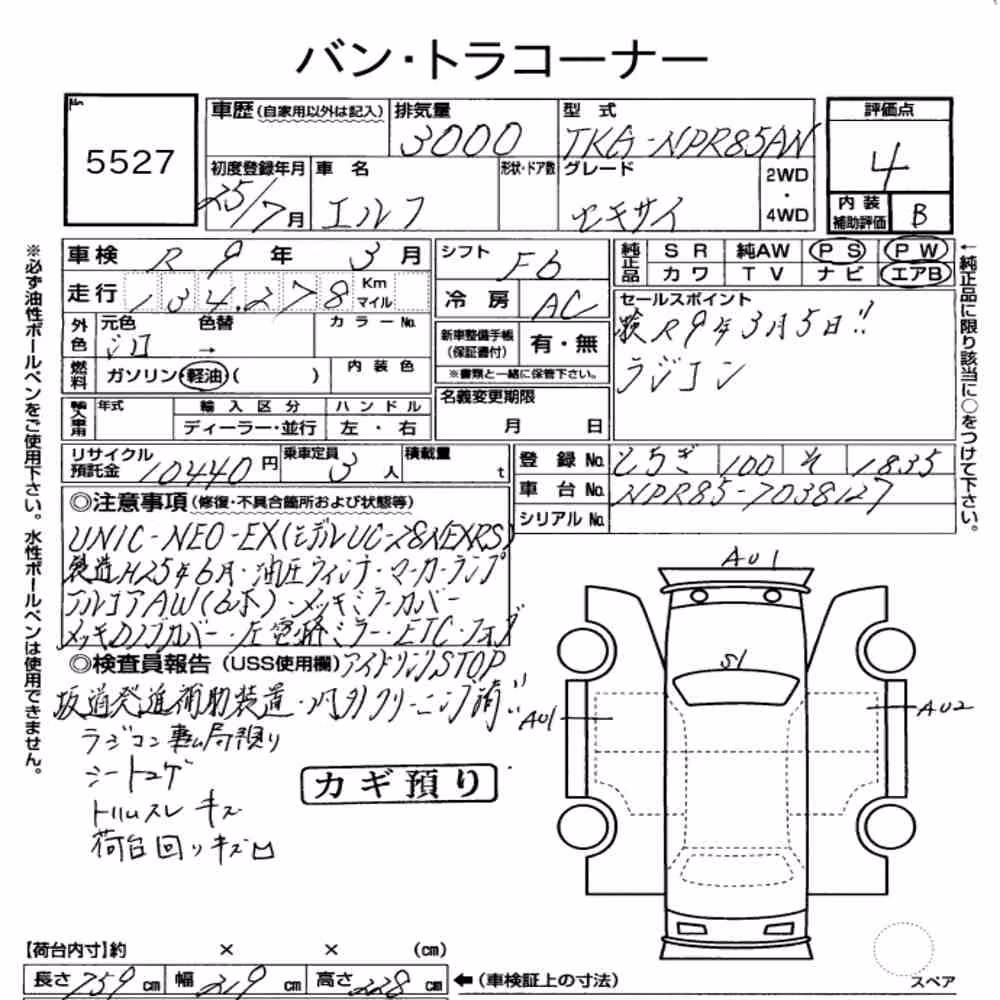 バン・トラコーナー
No. 5527
車歴 (自家用以外は記入)
排気量 3000
型式 TKG-NPR85AN
評価点 4
初度登録年月 25/7月
車名 エルフ
形状・ドア数
グレード セキサイ
2WD・4WD
内装補助評価 B
車検 R9年3月
シフト F6
純正品 SR 純AW PS PW
カワ TV ナビ エアB
走行 134,278 Km マイル
冷房 AC
セールスポイント
験R9年3月5日!!
ラジコン
外色 元色 シロ 色替 → カラーNo.
新車整備手帳(保証書付) 有・無
※書類と一緒に保管下さい。
燃料 ガソリン・軽油( ) 内装色
名義変更期限 月 日
輸入車用 年式 輸入区分 ハンドル
ディーラー・並行 左・右
リサイクル預託金 10440円
乗車定員 3人
積載量 t
登録No. とちぎ 100 そ 1835
車台No. NPR85-7038127
シリアルNo.
◎注意事項(修復・不具合箇所および状態等)
UNIC-NEO-EX(モデルUC-28NEXRS)
製造H25年6月・油圧ウィンチ・マーカーランプ
アルコアAW(6本)・メッキミラーカバー
メッキドアノブカバー・左電格ミラー・ETC・フォグ
◎検査員報告(USS使用欄) アイドリングSTOP
坂道発進補助装置・内外クリーニング済!!
ラジコン事ム局預り
シートコゲ
トリムスレ キズ
荷台回りキズ凹
カギ預り
A01
S1
A01
A02
スペア
【荷台内寸】約 × × (cm)
長さ 759cm 幅 219cm 高さ 228cm ←(車検証上の寸法)
※必ず油性ボールペンをご使用下さい。水性ボールペンは使用できません。
←純正品に限り該当に○をつけて下さい。